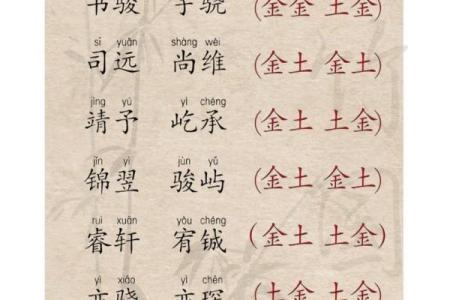 书骏 子骁 (金金 土金)
sī yuǎn shàng wéi
司远 尚维 (金土 金土)
jìng yú yì chéng
靖予 屹承 (金土 土金)
jǐn yì jùn yǔ
锦翌 骏屿 (金土 金土)
rui xuān yòu chéng
睿轩 宥铖 (金土 土金)
yì xiāo yì chēn
奕骁 奕琛 (金土 土金)